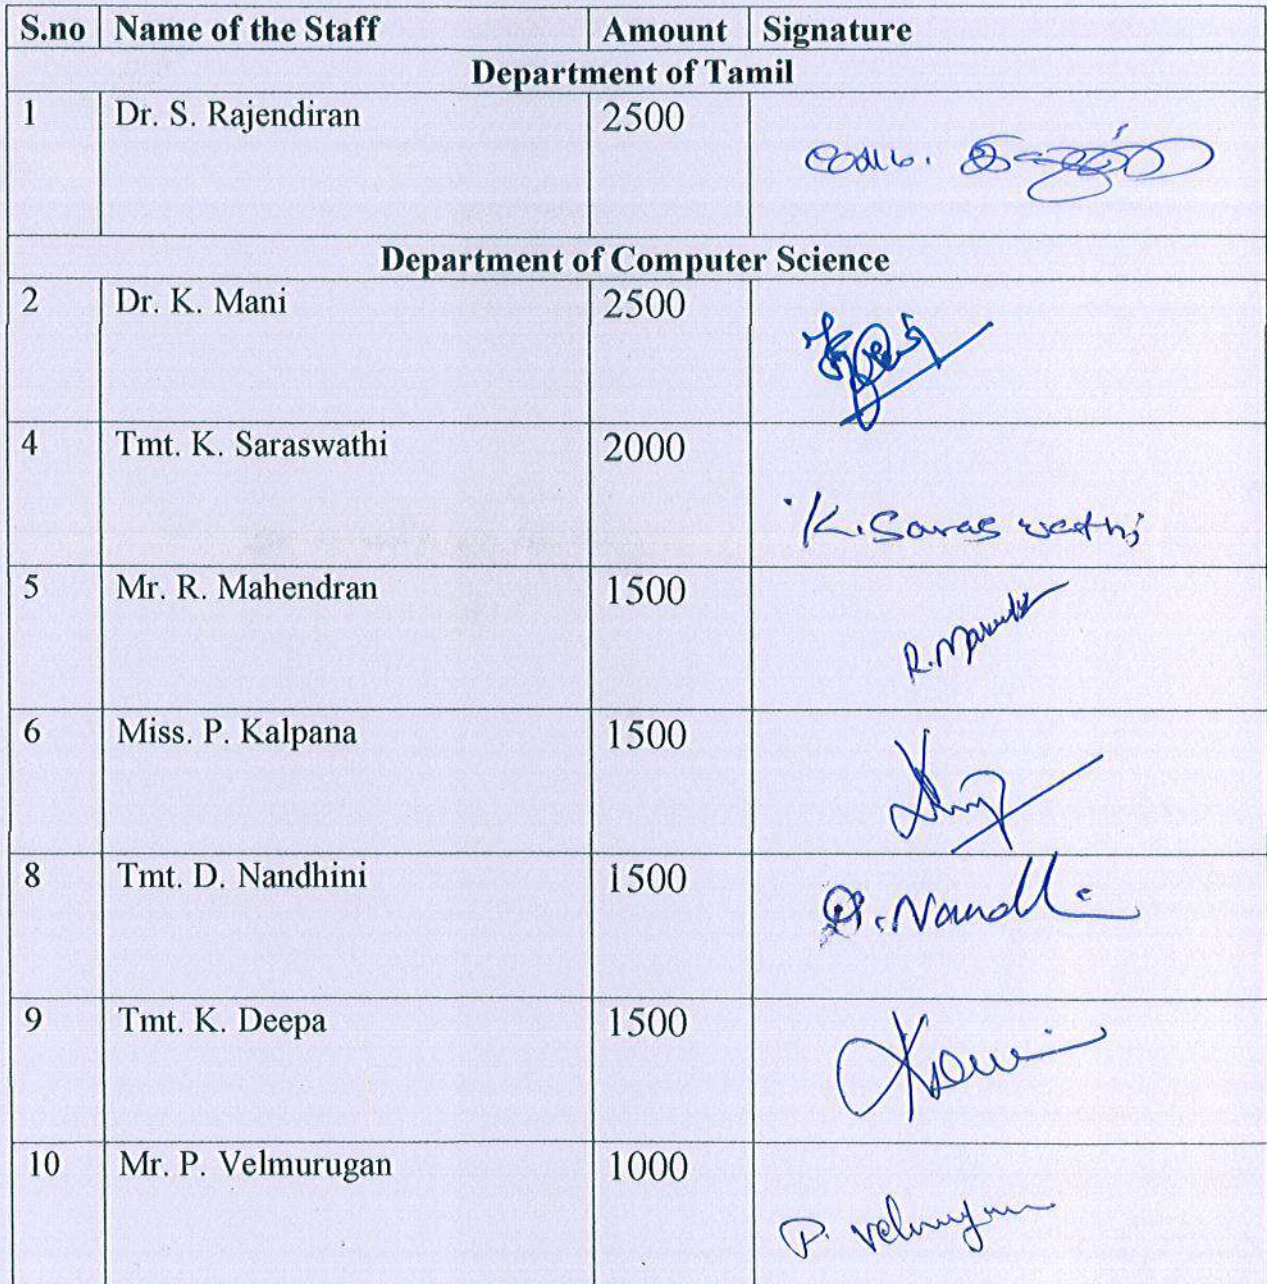 S.no Name of the Staff Amount Signature
Department of Tamil
1 Dr. S. Rajendiran 2500
Department of Computer Science
2 Dr. K. Mani 2500
4 Tmt. K. Saraswathi 2000
K. Saraswathi
5 Mr. R. Mahendran 1500
6 Miss. P. Kalpana 1500
8 Tmt. D. Nandhini 1500
9 Tmt. K. Deepa 1500
10 Mr. P. Velmurugan 1000
P. Velmurugan